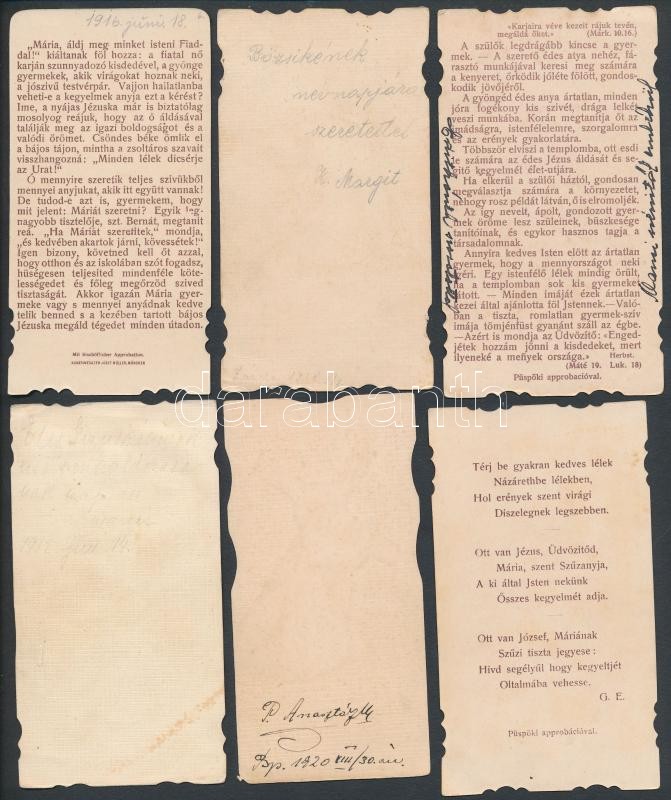 1916. juni. 18.
„Mária, áldj meg minket isteni Fiad-
dal!" kiáltanak föl hozza: a fiatal nő
karján szunnyadozó kisdedével, a gyönge
gyermekek, akik virágokat hoznak neki,
a jószivű testvérpár. Vajjon hallatlanba
veheti-e a kegyelmek anyja ezt a kérést?
Ime, a nyájas Jézuska már is biztatólag
mosolyog reájuk, hogy az ó áldásával
találják meg az igazi boldogságot és a
valódi örömet. Csöndes béke ömlik el
a bájos tájon, mintha a zsoltáros szavait
visszhangozná: „Minden lélek dicsérje
az Urat!"
Ó mennyire szeretik teljes szivükből
mennyei anyjukat, akik itt együtt vannak!
De tudod-e azt is, gyermekem, hogy
mit jelent: Máriát szeretni? Egyik leg-
nagyobb tisztelője, szt. Bernát, megtanit
reá. „Ha Máriát szeretitek," mondja,
„és kedvében akartok járni, kövessétek!"
Igen bizony, követned kell őt azzal,
hogy otthon és az iskolában szót fogadsz,
hüségesen teljesited mindenféle köte-
lességedet és főleg megőrzöd szived
tisztaságát. Akkor igazán Mária gyer-
meke vagy s mennyei anyádnak kedve
telik benned s a kezében tartott bájos
Jézuska megáld tégedet minden útadon.
Mit bischöflicher Approbation.
KUNSTANSTALTEN JOSEF MÜLLER, MÜNCHEN
Bözsikének
nevnapjára
szeretettel
H. Margit
«Karjaira véve kezeit rájuk tevén,
megáldá őket.» (Márk. 10.16.)
A szülők legdrágább kincse a gyer-
mek. — A szerető édes atya nehéz, fá-
rasztó munkájával keresi meg számára
a kenyeret, őrködik jóléte fölött, gondos-
kodik jövőjéről.
A gyöngéd édes anya ártatlan, minden
jóra fogékony kis szivét, drága lelkét
veszi munkába. Korán megtanitja őt az
imádságra, istenfélelemre, szorgalomra
és az erények gyakorlatára.
Többször elviszi a templomba, ott esdi
de számára az édes Jézus áldását és se-
gitő kegyelmét élet-utjára.
Ha elkerül a szülői háztól, gondosan
megválasztja számára a környezetet,
nehogy rosz példát látván, ő is elromoljék.
Az így nevelt, ápolt, gondozott gyer-
mek öröme lesz szüleinek, büszkesége
tanitóinak, és egykor hasznos tagja a
társadalomnak.
Annyira kedves Isten előtt az ártatlan
gyermek, hogy a mennyországot neki
igéri. Egy istenfélő lélek mindig örült,
ha a templomban sok kis gyermeket
látott. — Minden imáját ezek ártatlan
kezei által ajánlotta föl Jstennek.—Való-
ban a tiszta, romlatlan gyermek-sziv
imája tömjénfüst gyanánt száll az égbe.
—Azért is mondja az Üdvözitő: «Enged-
jétek hozzám jönni a kisdedeket, mert
ilyeneké a meňyek országa.» Herbst.
(Máté 19. Luk. 18)
Püspöki approbacióval.
darabanth
P. Anasztáz
Bp. 1920 VIII/30.-án.
Térj be gyakran kedves lélek
Názárethbe lélekben,
Hol erények szent virági
Diszelegnek legszebben.
Ott van Jézus, Üdvözitőd,
Mária, szent Szűzanyja,
A ki által Jsten nekünk
Összes kegyelmét adja.
Ott van József, Máriának
Szűzi tiszta jegyese:
Hivd segélyül hogy kegyeltjét
Oltalmába vehesse.
G. E.
Püspöki approbációval.